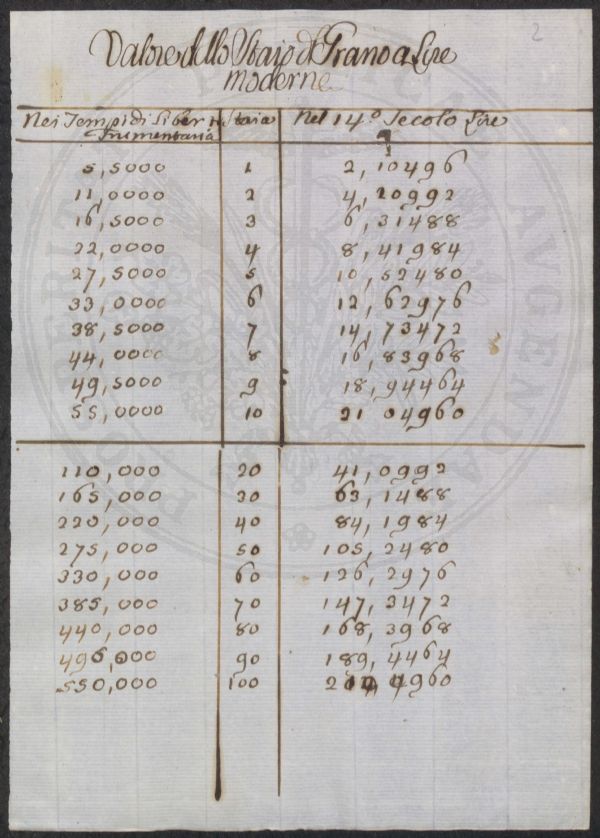 2
Valore dello Staio di Grano a Lire
moderne
Nei Tempi di Liber Staia Nel 14.º Secolo Lire
frumentaria
5,5000 1 2,10496
11,0000 2 4,20992
16,5000 3 6,31488
22,0000 4 8,41984
27,5000 5 10,52480
33,0000 6 12,62976
38,5000 7 14,73472
44,0000 8 16,83968
49,5000 9 18,94464
55,0000 10 21 04960
110,000 20 41,0992
165,000 30 63,1488
220,000 40 84,1984
275,000 50 105,2480
330,000 60 126,2976
385,000 70 147,3472
440,000 80 168,3968
495,000 90 189,4464
550,000 100 210,4960
PRO VERITATE AVGENDA